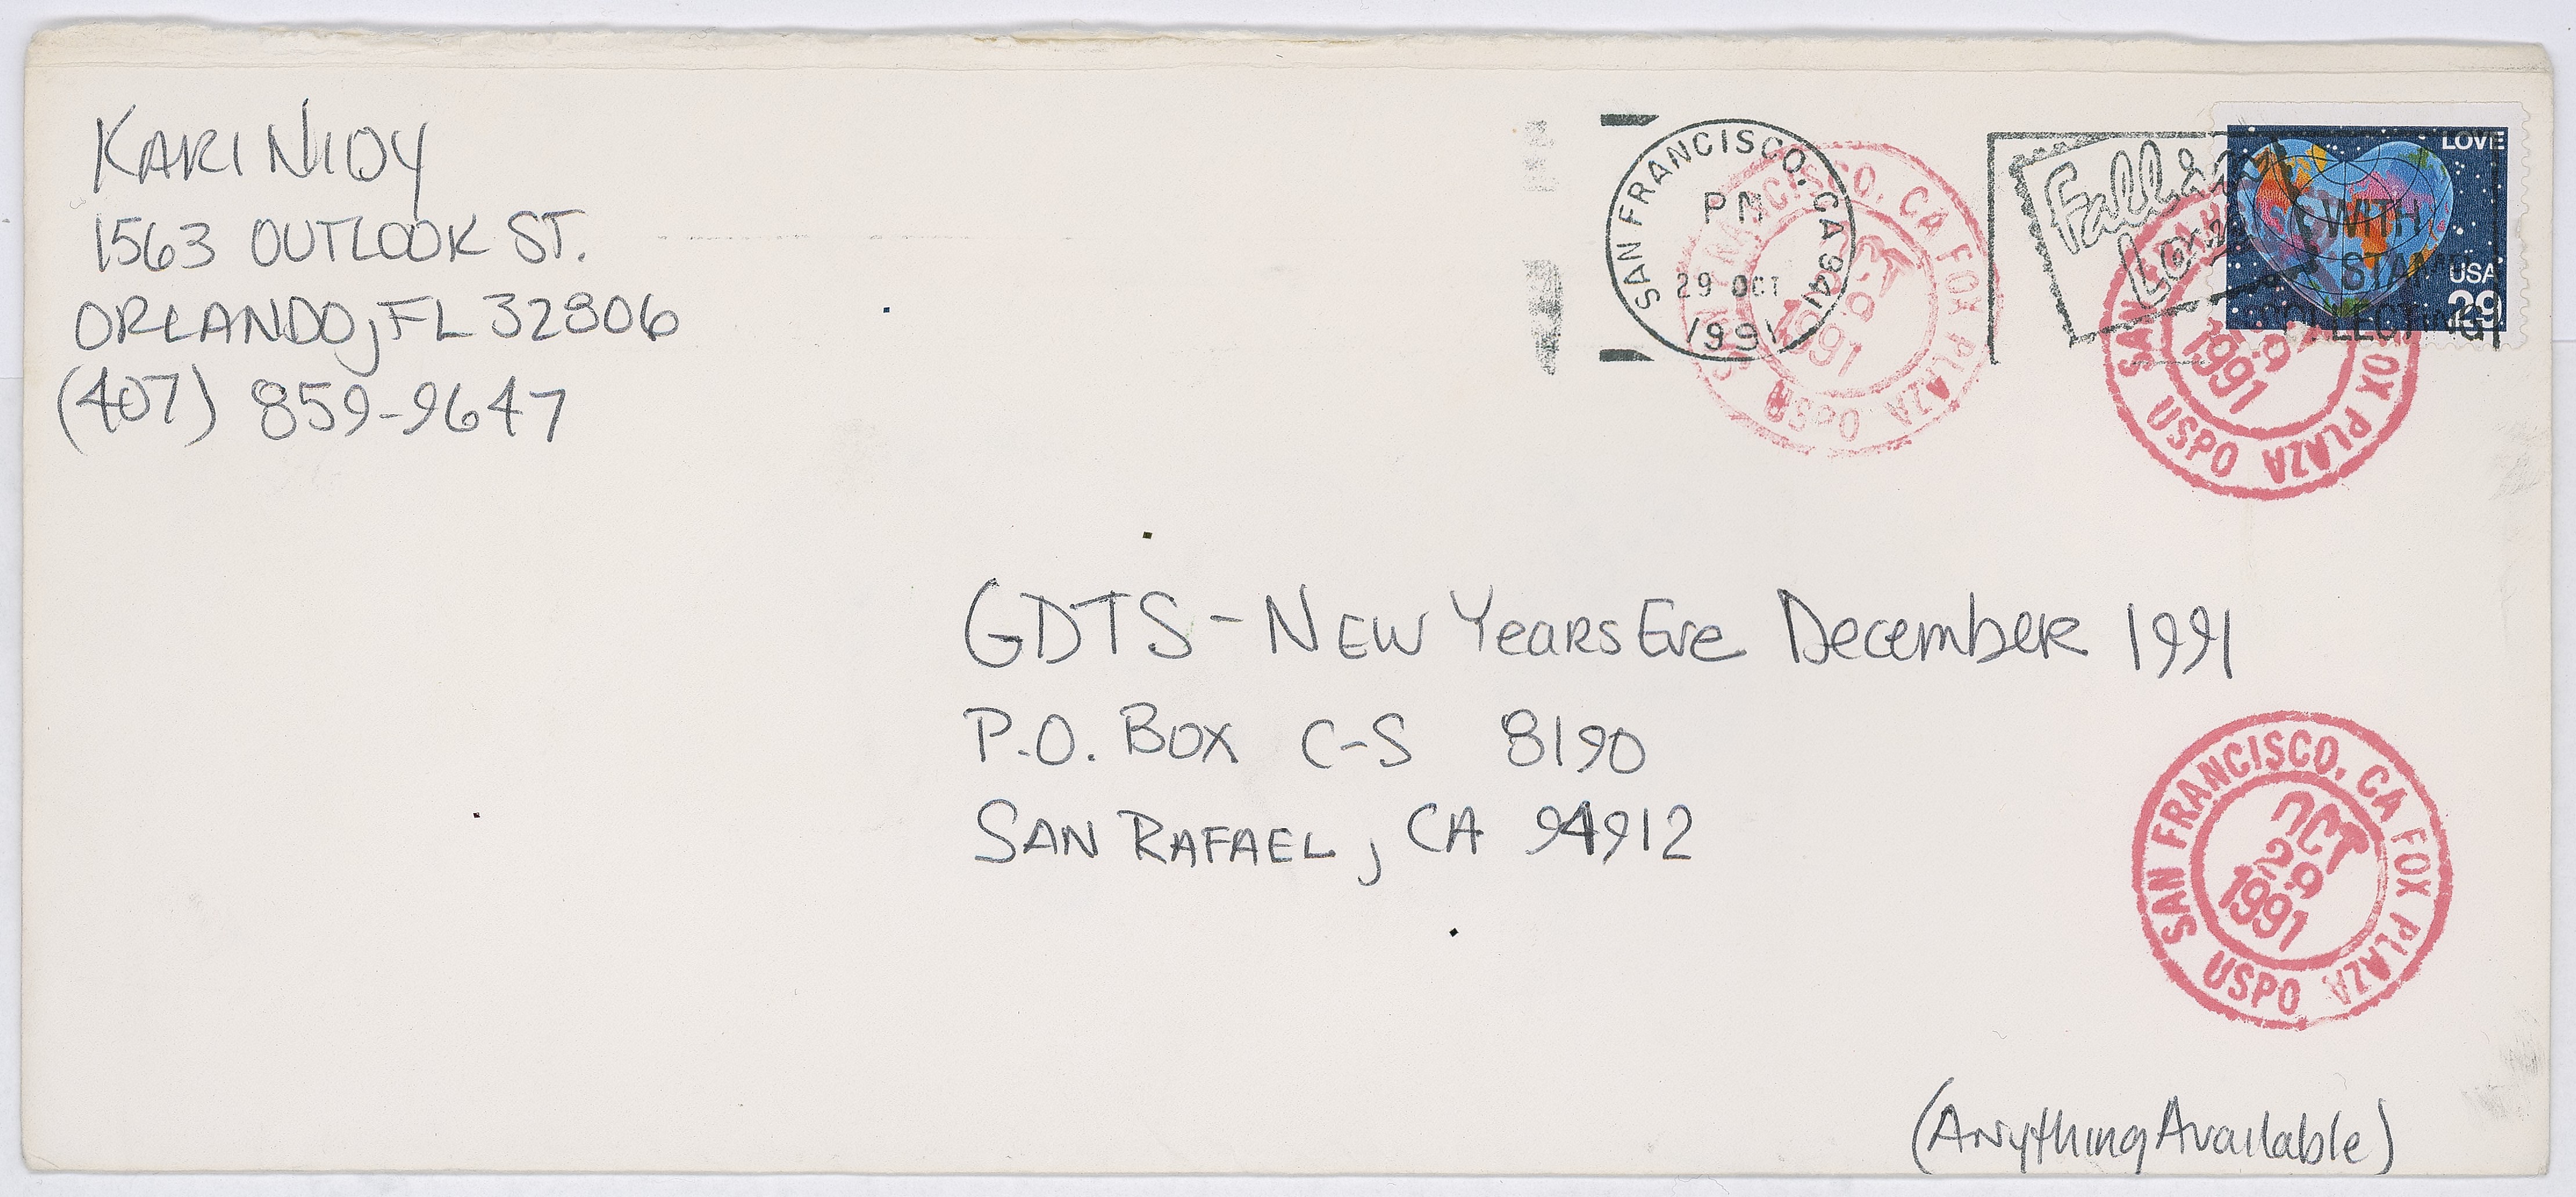 KARI NIDY
1563 OUTLOOK ST.
ORLANDO, FL 32806
(407) 859-9647
SAN FRANCISCO, CA 941
PM
29 OCT
1991
FRANCISCO, CA FOX PLAZA USPO
1991
Fall in
Love
WITH
STAMP
COLLECTING
LOVE
USA
29
SAN FOX PLAZA USPO
1991
GDTS - NEW YEARS EVE DECEMBER 1991
P.O. BOX C-S 8190
SAN RAFAEL, CA 94912
SAN FRANCISCO, CA FOX PLAZA USPO
OCT
29
1991
(Anything Available)